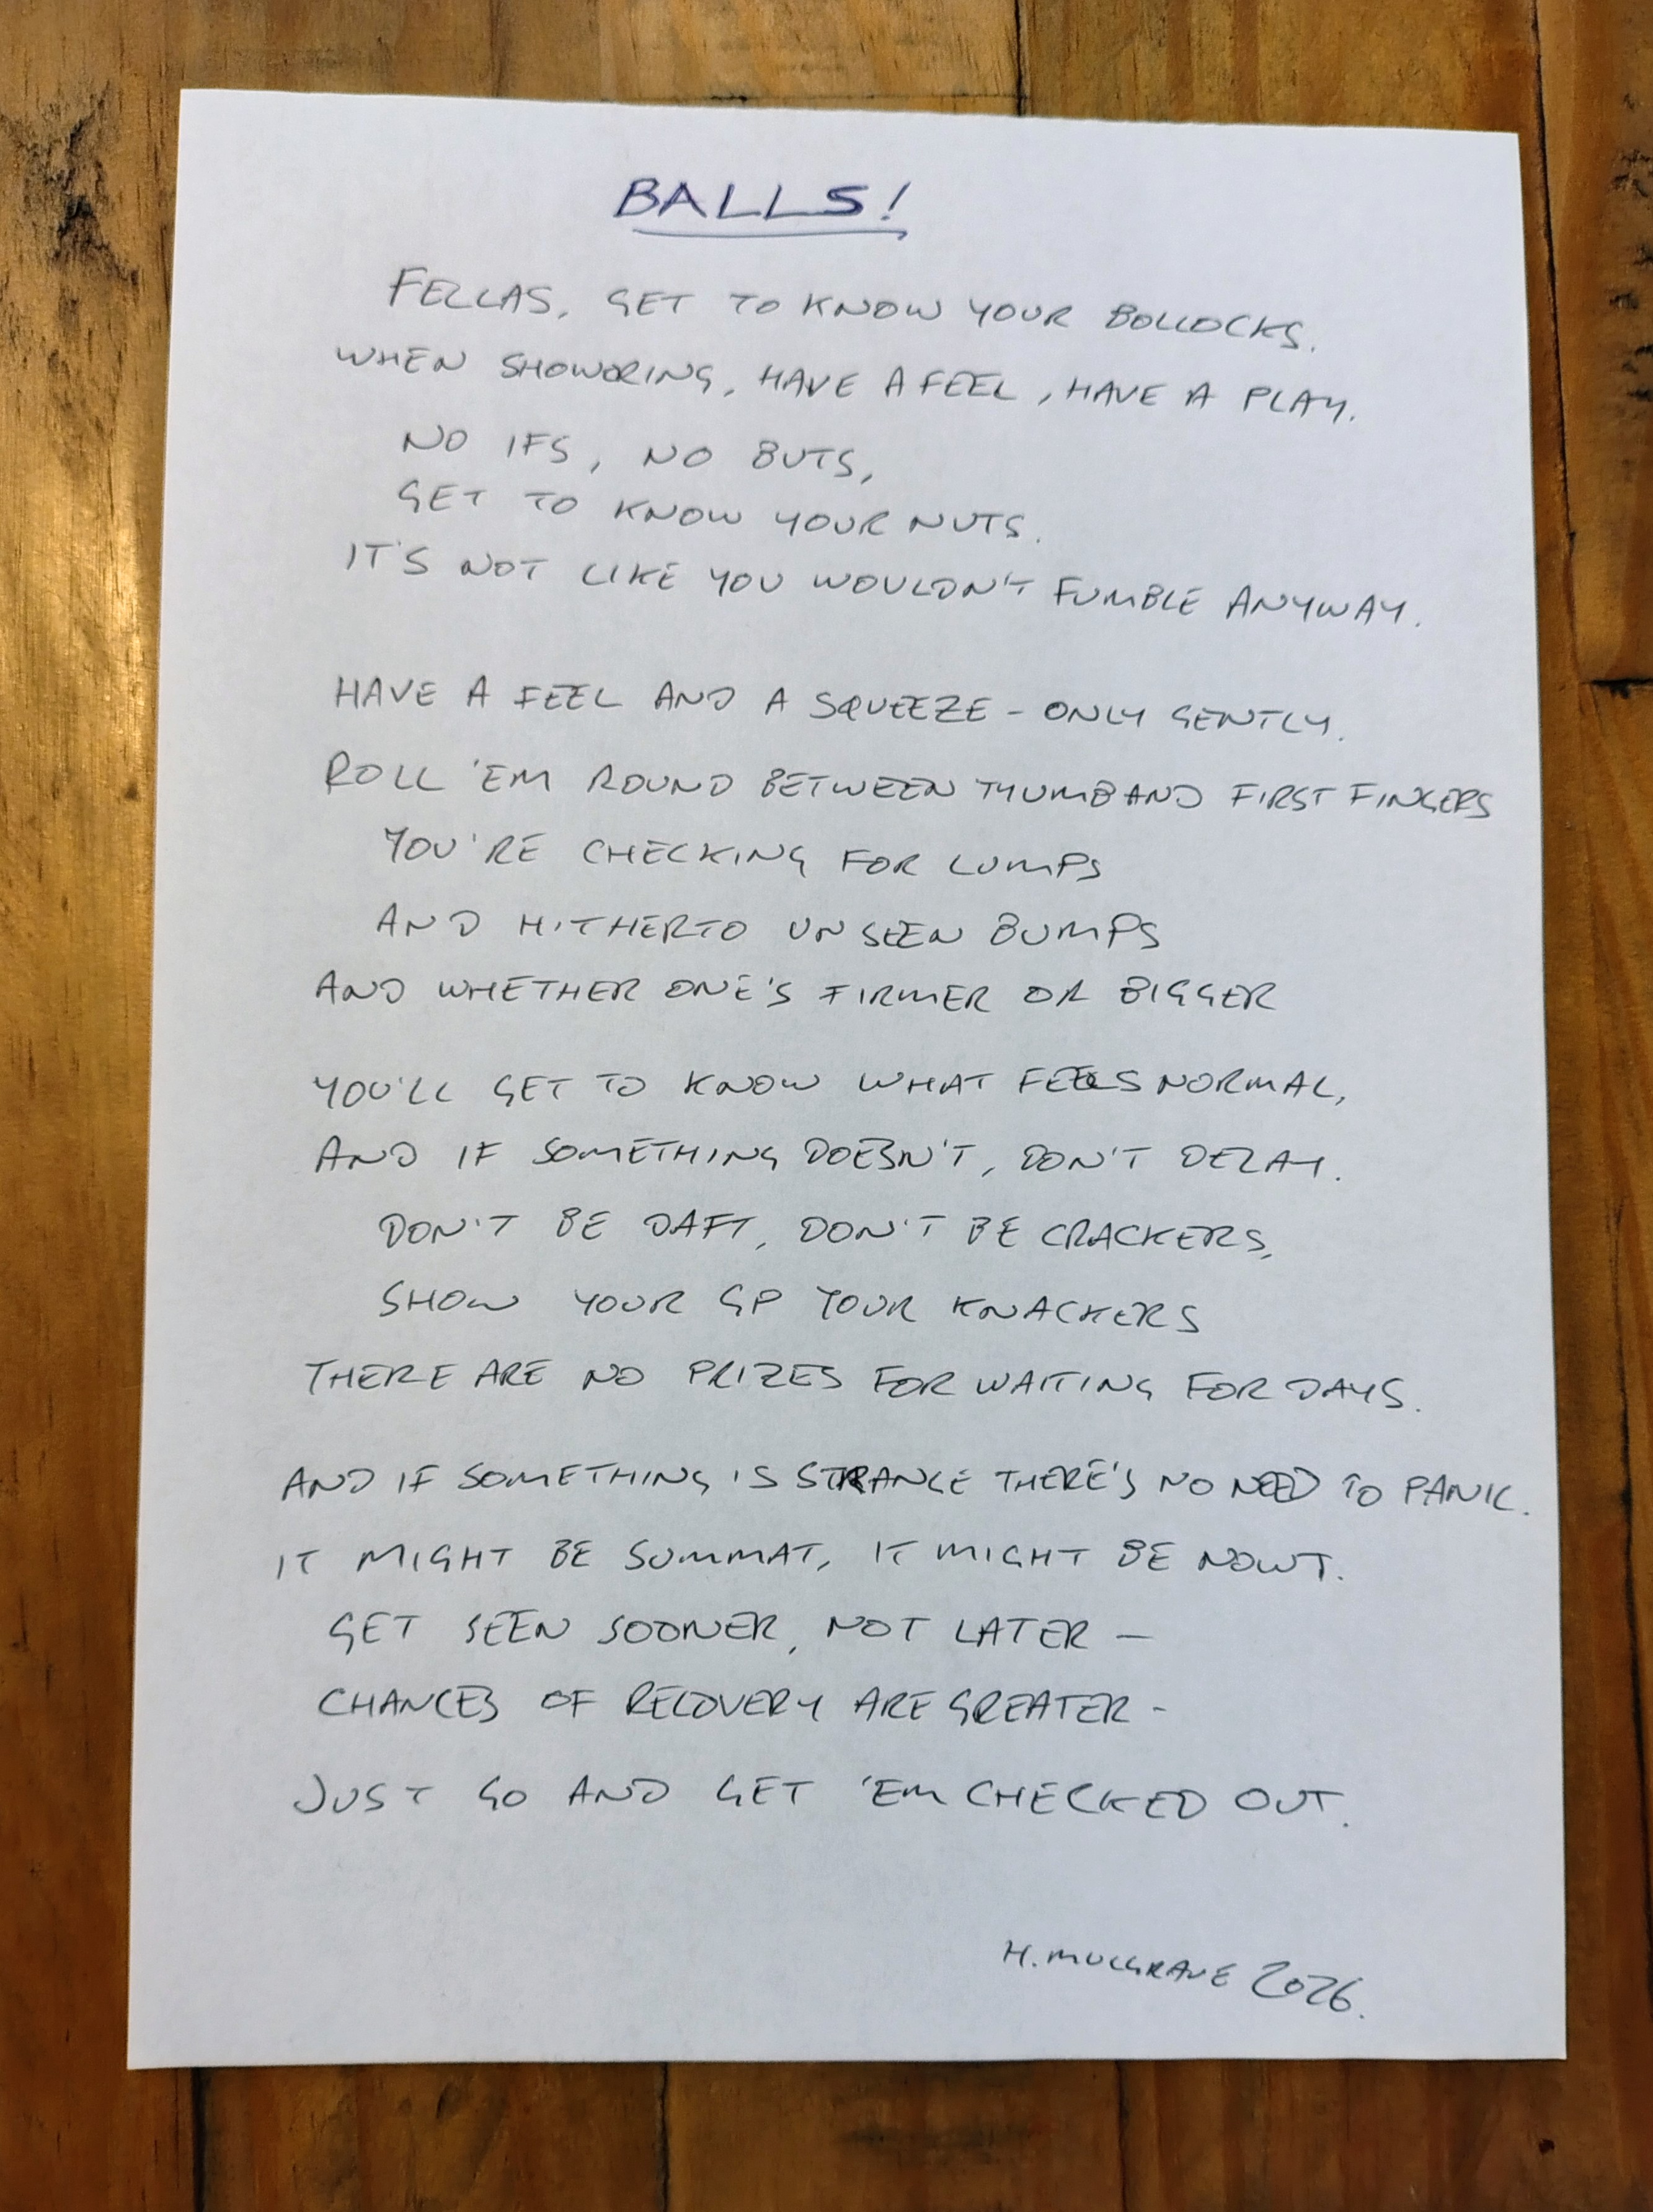 BALLS!
FELLAS, GET TO KNOW YOUR BOLLOCKS.
WHEN SHOWERING, HAVE A FEEL, HAVE A PLAY.
NO IFS, NO BUTS,
GET TO KNOW YOUR NUTS.
IT'S NOT LIKE YOU WOULDN'T FUMBLE ANYWAY.
HAVE A FEEL AND A SQUEEZE - ONLY GENTLY.
ROLL 'EM ROUND BETWEEN THUMB AND FIRST FINGERS
YOU'RE CHECKING FOR LUMPS
AND HITHERTO UNSEEN BUMPS
AND WHETHER ONE'S FIRMER OR BIGGER
YOU'LL GET TO KNOW WHAT FEELS NORMAL,
AND IF SOMETHING DOESN'T, DON'T DELAY.
DON'T BE DAFT, DON'T BE CRACKERS,
SHOW YOUR GP YOUR KNACKERS
THERE ARE NO PRIZES FOR WAITING FOR DAYS.
AND IF SOMETHING IS STRANGE THERE'S NO NEED TO PANIC.
IT MIGHT BE SUMMAT, IT MIGHT BE NOWT.
GET SEEN SOONER, NOT LATER —
CHANCES OF RECOVERY ARE GREATER -
JUST GO AND GET 'EM CHECKED OUT.
H. MULGRAVE 2026.